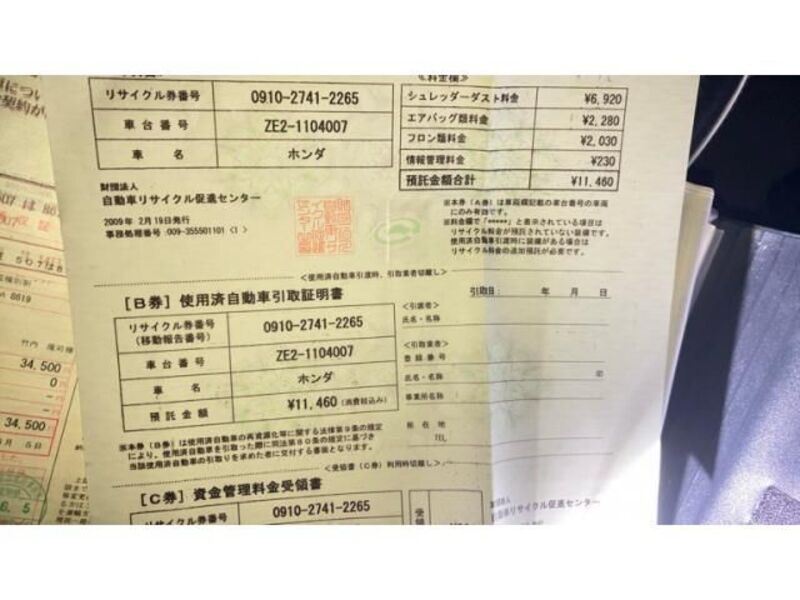 ≪料金欄≫
リサイクル券番号 0910-2741-2265
車台番号 ZE2-1104007
車名 ホンダ
シュレッダーダスト料金 ¥6,920
エアバッグ類料金 ¥2,280
フロン類料金 ¥2,030
情報管理料金 ¥230
預託金額合計 ¥11,460
財団法人
自動車リサイクル促進センター
2009年 2月19日発行
事務処理番号:009-355501101〈1〉
※本券（A券）は車両欄記載の車台番号の車両
にのみ有効です。
※料金欄で「*****」と表示されている項目は
リサイクル料金が預託されていない装備です。
使用済自動車引渡時に装備がある場合は
リサイクル料金の追加預託が必要です。
＜使用済自動車引渡時、引取業者切離し＞
［B券］使用済自動車引取証明書
引取日： 年 月 日
リサイクル券番号
(移動報告番号) 0910-2741-2265
車台番号 ZE2-1104007
車名 ホンダ
預託金額 ¥11,460 (消費税込み)
＜引渡者＞
氏名・名称
＜引取業者＞
登録番号
氏名・名称 ㊞
事業所名称
所在地
TEL
※本券（B券）は使用済自動車の再資源化等に関する法律第9条の規定
により、使用済自動車を引取った際に同法第80条の規定に基づき
当該使用済自動車の引取りを求めた者に交付する書面となります。
＜受領書（C券）利用時切離し＞
［C券］資金管理料金受領書
リサイクル券番号 0910-2741-2265
財団法人
自動車リサイクル促進センター
34,500
0
34,500